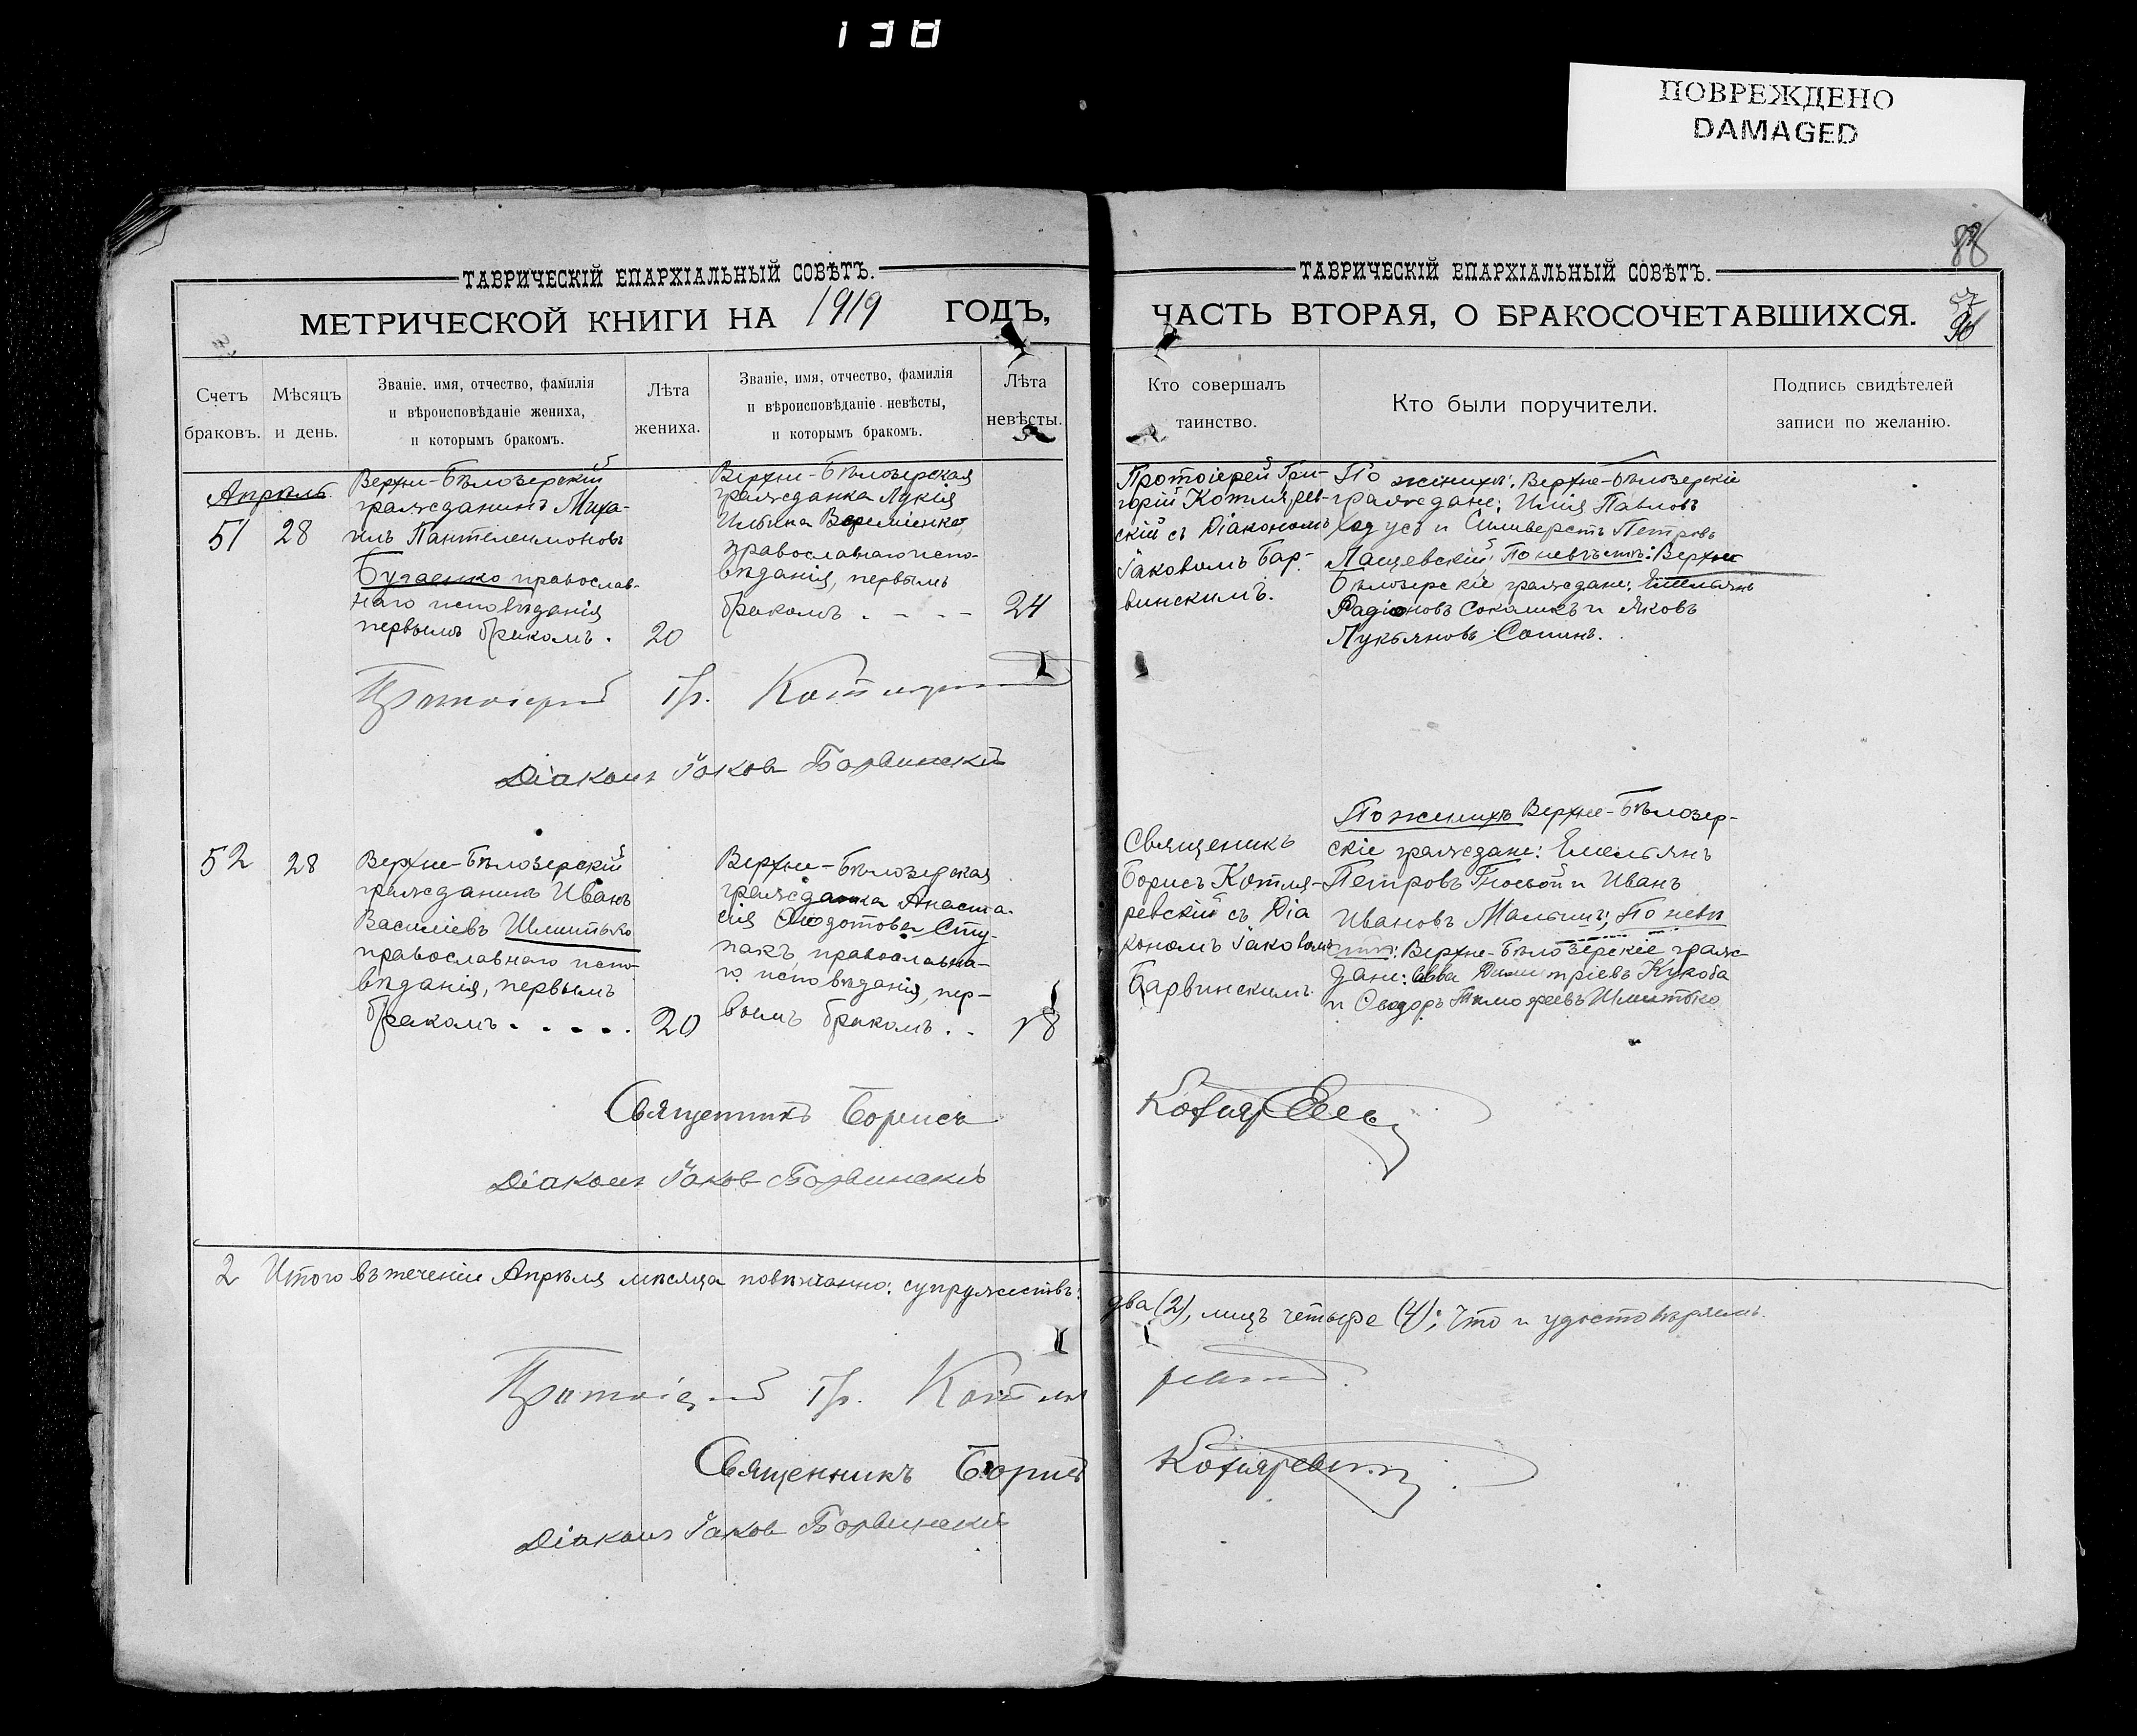 138
ПОВРЕЖДЕНО
DAMAGED
88
ТАВРИЧЕСКІЙ ЕПАРХІАЛЬНЫЙ СОВѢТЪ.
МЕТРИЧЕСКОЙ КНИГИ НА 1919 ГОДЪ,
Счетъ браковъ.
Мѣсяцъ и день.
Званіе, имя, отчество, фамилія
и вѣроисповѣданіе жениха,
и которымъ бракомъ.
Лѣта жениха.
Званіе, имя, отчество, фамилія
и вѣроисповѣданіе невѣсты,
и которымъ бракомъ.
Лѣта невѣсты.
Апрѣль
51
28
Верхне-Бѣлозерскій
гражданинъ Миха-
илъ Пантелеимоновъ
Бугаенко православ-
наго исповѣданія
первымъ бракомъ.
20
Верхне-Бѣлозерская
гражданка Лукія
Ильина Веремiенко,
православнаго испо-
вѣданія, первымъ
бракомъ . - - -
24
Протоіерей Гр.
Діаконъ Іаковъ Барвинскій
52
28
Верхне-Бѣлозерскій
гражданинъ Иванъ
Василіевъ Шмитько
православнаго испо-
вѣданія, первымъ
бракомъ . . . . .
20
Верхне-Бѣлозерская
гражданка Анаста-
сія Ѳеодотова Сту-
пакъ, православна-
го исповѣданія, пер-
вымъ бракомъ . .
18
Священникъ Борисъ
Діаконъ Іаковъ Барвинскій
2 Итого въ теченіи Апрѣля мѣсяца повѣнчанно: супружествъ:
Протоіерей Гр. Котля
Священникъ Борисъ
Діаконъ Іаковъ Барвинскій
ТАВРИЧЕСКІЙ ЕПАРХІАЛЬНЫЙ СОВѢТЪ.
ЧАСТЬ ВТОРАЯ, О БРАКОСОЧЕТАВШИХСЯ.
Кто совершалъ
таинство.
Кто были поручители.
Подпись свидѣтелей
записи по желанію.
Протоіерей Гри-
горій Котлярев-
скій съ Діакономъ
Іаковомъ Бар-
винскимъ.
По женихѣ: Верхне-Бѣлозерскіе
граждане: Илія Павловъ
и Сильверстъ Петровъ
Лащевскій; По невѣстѣ: Верхне
Бѣлозерскіе граждане: Емельянъ
Радіоновъ Сокаликъ и Яковъ
Лукьяновъ Сопинъ.
Священикъ
Борисъ Котля-
ревскій съ Діа
кономъ Іаковомъ
Барвинскимъ
По женихѣ Верхне-Бѣлозер-
скіе граждане: Емельянъ
Петровъ и Иванъ
Ивановъ; По невѣ
стѣ: Верхне-Бѣлозерскіе граж-
дане: Савва Димитріевъ Кукоба
и Ѳеодоръ Тимофеевъ Шмитько
Котляревскій
два (2), лицъ четыре (4); Что и удостовѣряемъ.
ревскій
Котляревскій